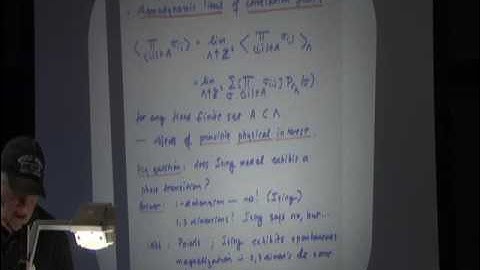 · Thermodynamic limit of correlation functions
⟨ ∏_{(i)∈A} σ(i) ⟩ = lim_{Λ↑Z²} ⟨ ∏_{(i)∈A} σ(i) ⟩_Λ
= lim_{Λ↑Z²} Σ_σ [ ∏_{(i)∈A} σ(i) ] P_Λ(σ)
for any fixed finite set A ⊂ Λ
— objects of principle physical interest.
Key question: does Ising model exhibit a
phase transition?
Answer: 1-dimension — no! (Ising)
2,3 dimensions! Ising says no, but...
: Peierls ; Ising exhibits spontaneous
magnetization in 2,3 dimen's